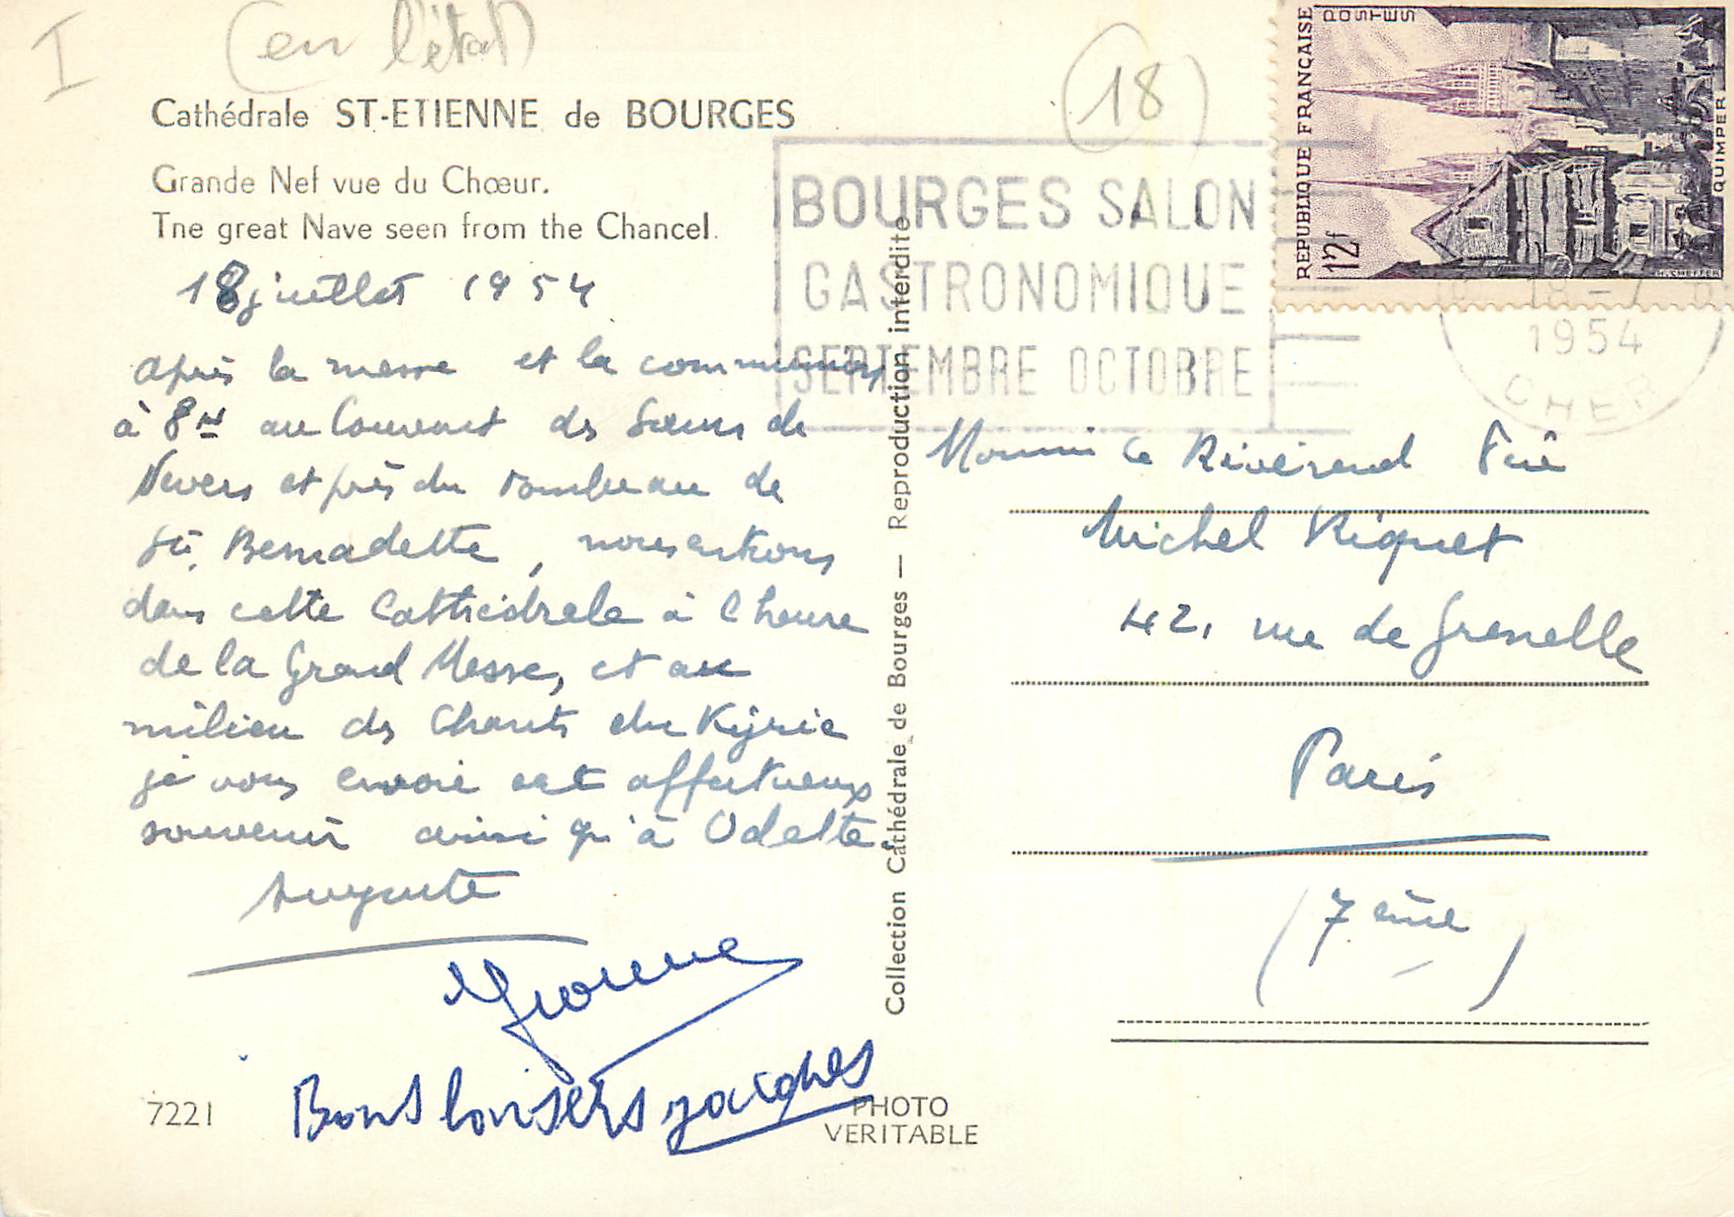 I
(en l'état)
(18)
Cathédrale ST-ETIENNE de BOURGES
Grande Nef vue du Chœur.
The great Nave seen from the Chancel.
18 juillet 1954
Après la messe et la communion
à 8H au Couvent des Sœurs de
Nevers et près du tombeau de
Ste Bernadette, nous entrons
dans cette Cathédrale à l'heure
de la Grand Messe, et au
milieu des Chants du Kyrie
je vous envoie cet affectueux
souvenir ainsi qu'à Odette.
Auguste
Yvonne
Bons baisers Jacques
7221
PHOTO
VERITABLE
Collection Cathédrale de Bourges — Reproduction interdite
BOURGES SALON
GASTRONOMIQUE
SEPTEMBRE OCTOBRE
18 - 7
1954
CHER
REPUBLIQUE FRANÇAISE
POSTES
12f
QUIMPER
Monsieur le Révérend Père
Michel Riquet
42, rue de Grenelle
Paris
(7ème)